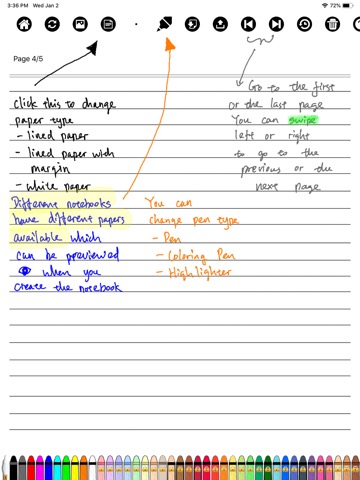 3:36 PM Wed Jan 2
72%
Page 4/5
Click this to change
paper type
- lined paper
- lined paper with
margin
- white paper
Different notebooks
have different papers
available which
can be previewed
when you
create the notebook
You can
change pen type
- Pen
- Coloring Pen
- Highlighter
Go to the first
or the last page
You can swipe
left or right
to go to the
previous or the
next page